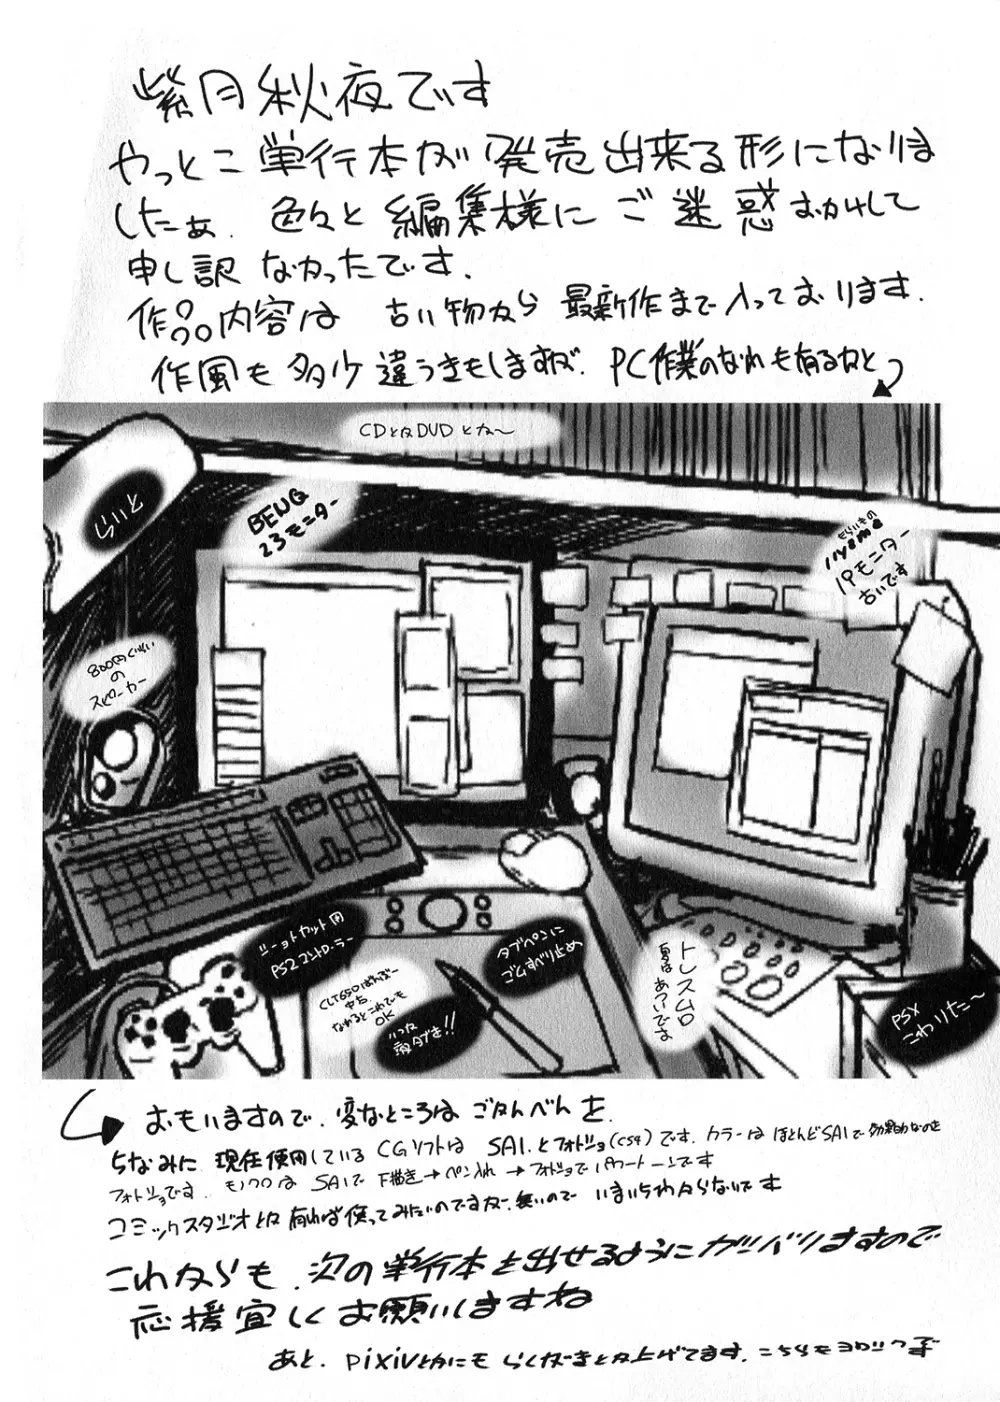 紫月秋夜です
やっとこ単行本が発売出来る形になりま
したぁ. 色々と編集様にご迷惑おかけして
申し訳なかったです.
作品内容は 古い物から最新作まで入っております.
作風も多少違うきもしますが. PC作業のなれも有るかと
CDとかDVDとか〜
らいと
BENQ
23モニター
もらいもの
iiyama
19モニター
古いです
800円くらい
の
スピーカー
ショートカット用
PS2コントローラー
タブペンに
ゴムすべり止め
中古.
なれるとこれでも
OK
トレス台
夏はあついです
PSX
こわれた〜
おもいますので. 変なところはごかんべんを
ちなみに 現在使用しているCGソフトは SAI.とフォトショ(CS4)です. カラーは ほとんどSAIで 効果的なのを
フォトショです. モノクロは SAIで 下描き→ペン入れ →フォトショでパワートーンです
コミックスタジオとか 有れば使ってみたいのですが. 無いので いまいちわからないです
これからも. 次の単行本を出せるようにガンバりますので
応援宜しくお願いしますね
あと. pixivとかにも らくがきとか上げてます. こちらもヨロシクデす